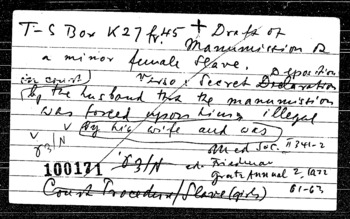 T-S Box K27 fr. 45 + Draft of
Manumission of
a minor female slave.
Verso: Secret Declaration
Deposition
(in court)
by the husband that the manumission
was forced upon him, illegal
by his wife and was
Med Soc. II 341-2
γ3/N
100171 γ3/N ed. Friedman
Gratz Annual 2, 1972
61-63
Court Procedure/Slave (girls)